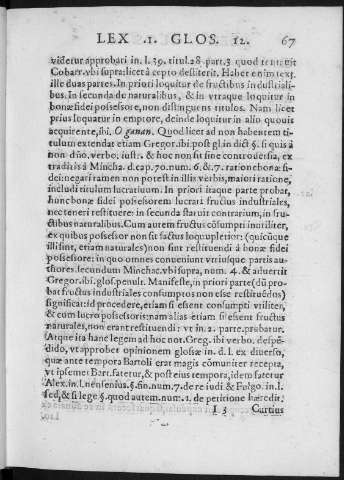 LEX .1. GLOS. 12. 67
videtur approbati in .l. 39. titul. 28. part. 3 quod tenuit
Cobarr. vbi supra: licet à cepto destiterit. Habet enim text.
ille duas partes. In priori loquitur de fructibus industriali-
bus. In secunda de naturalibus, & in vtraque loquitur in
bonæ fidei possessore, non distinguens titulos. Nam licet
prius loquatur in emptore, deinde loquitur in alio quouis
acquirente, ibi. O ganan. Quod licet ad non habentem ti-
tulum extendat etiam Gregor. ibi. post gl. in dict. §. si quis à
non dño. verbo. iust. & hoc non sit sine controuersia, ex
traditis à Mincha. d. cap. 70. num. 6. & 7. ratione bonæ fi-
dei: negari tamen non potest in illis verbis, maiori ratione,
includi titulum lucratiuum. In priori itaque parte probat,
hunc bonæ fidei possessorem lucrari fructus industriales,
nec teneri restituere: in secunda statuit contrarium, in fru-
ctibus naturalibus. Cum autem fructus cõsumpti inoriliter,
ex quibus possessor non sit factus locupletior: (quicũque
illi sint, etiam naturales) non sint restituendi à bonæ fidei
possessore: in quo omnes conueniunt vtriusque partis au-
thores. secundum Minchac. vbi supra, num. 4. & aduertit
Gregor. ibi. glos. penult. Manifeste, in priori parte (dũ pro-
bat fructus industriales consumptos non esse restituẽdos)
significat: id procedere, etiam si essent consumpti vtiliter,
& cum lucro possessoris: nam alias etiam si essent fructus
naturales, non erant restituendi: vt in 2. parte probatur.
Atque ita hanc legem ad hoc not. Greg. ibi verbo. despẽ-
dido, vt approbet opinionem glossæ in. d. l. ex diuerso,
quæ ante tempora Bartoli erat magis cõmuniter recepta,
vt ipsemet Bart. fatetur, & post eius tempora, idem fatetur
Alex. in l. nensenius. §. fin. num. 7. de re iudi & Fulgo. in l.
sed, & si lege §. quod autem. num. 1. de petitione hæredit.
I 3 Curtius